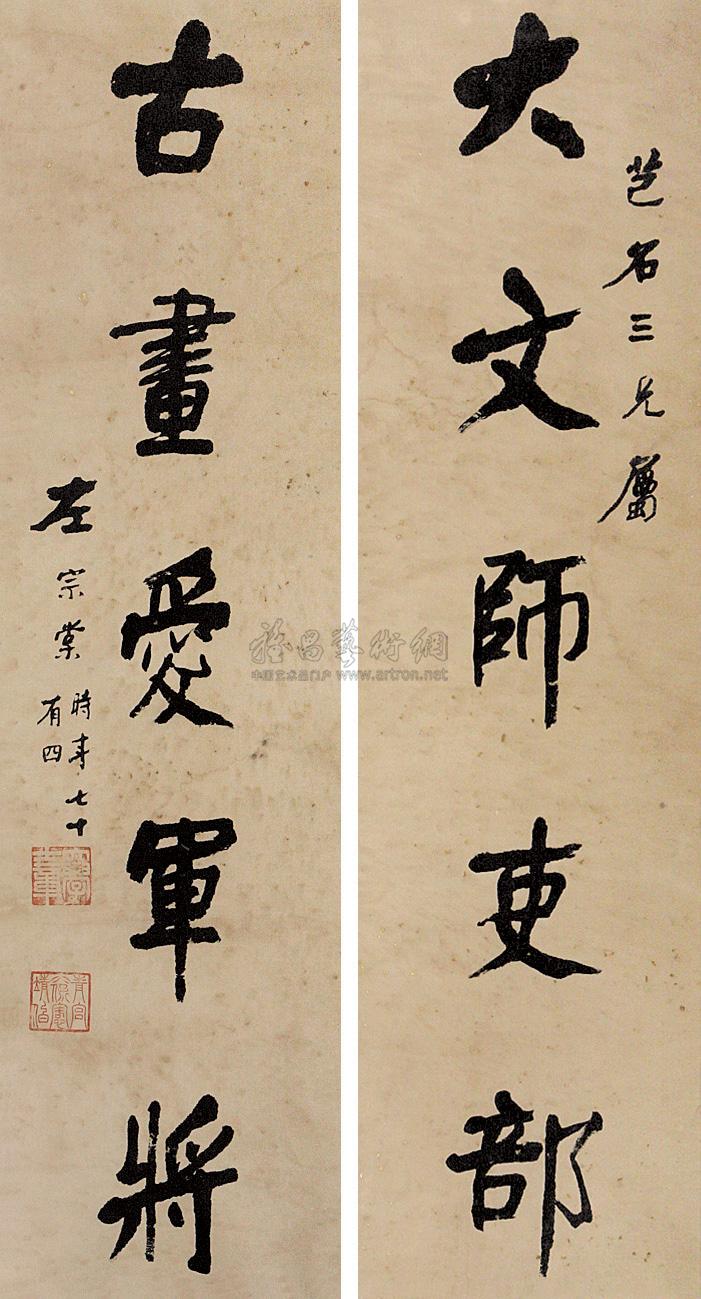 芑石三兄屬
大文師吏部
古畫愛軍將
左宗棠時年七十
有四
雅昌藝術網
中国艺术品门户 www.artron.net